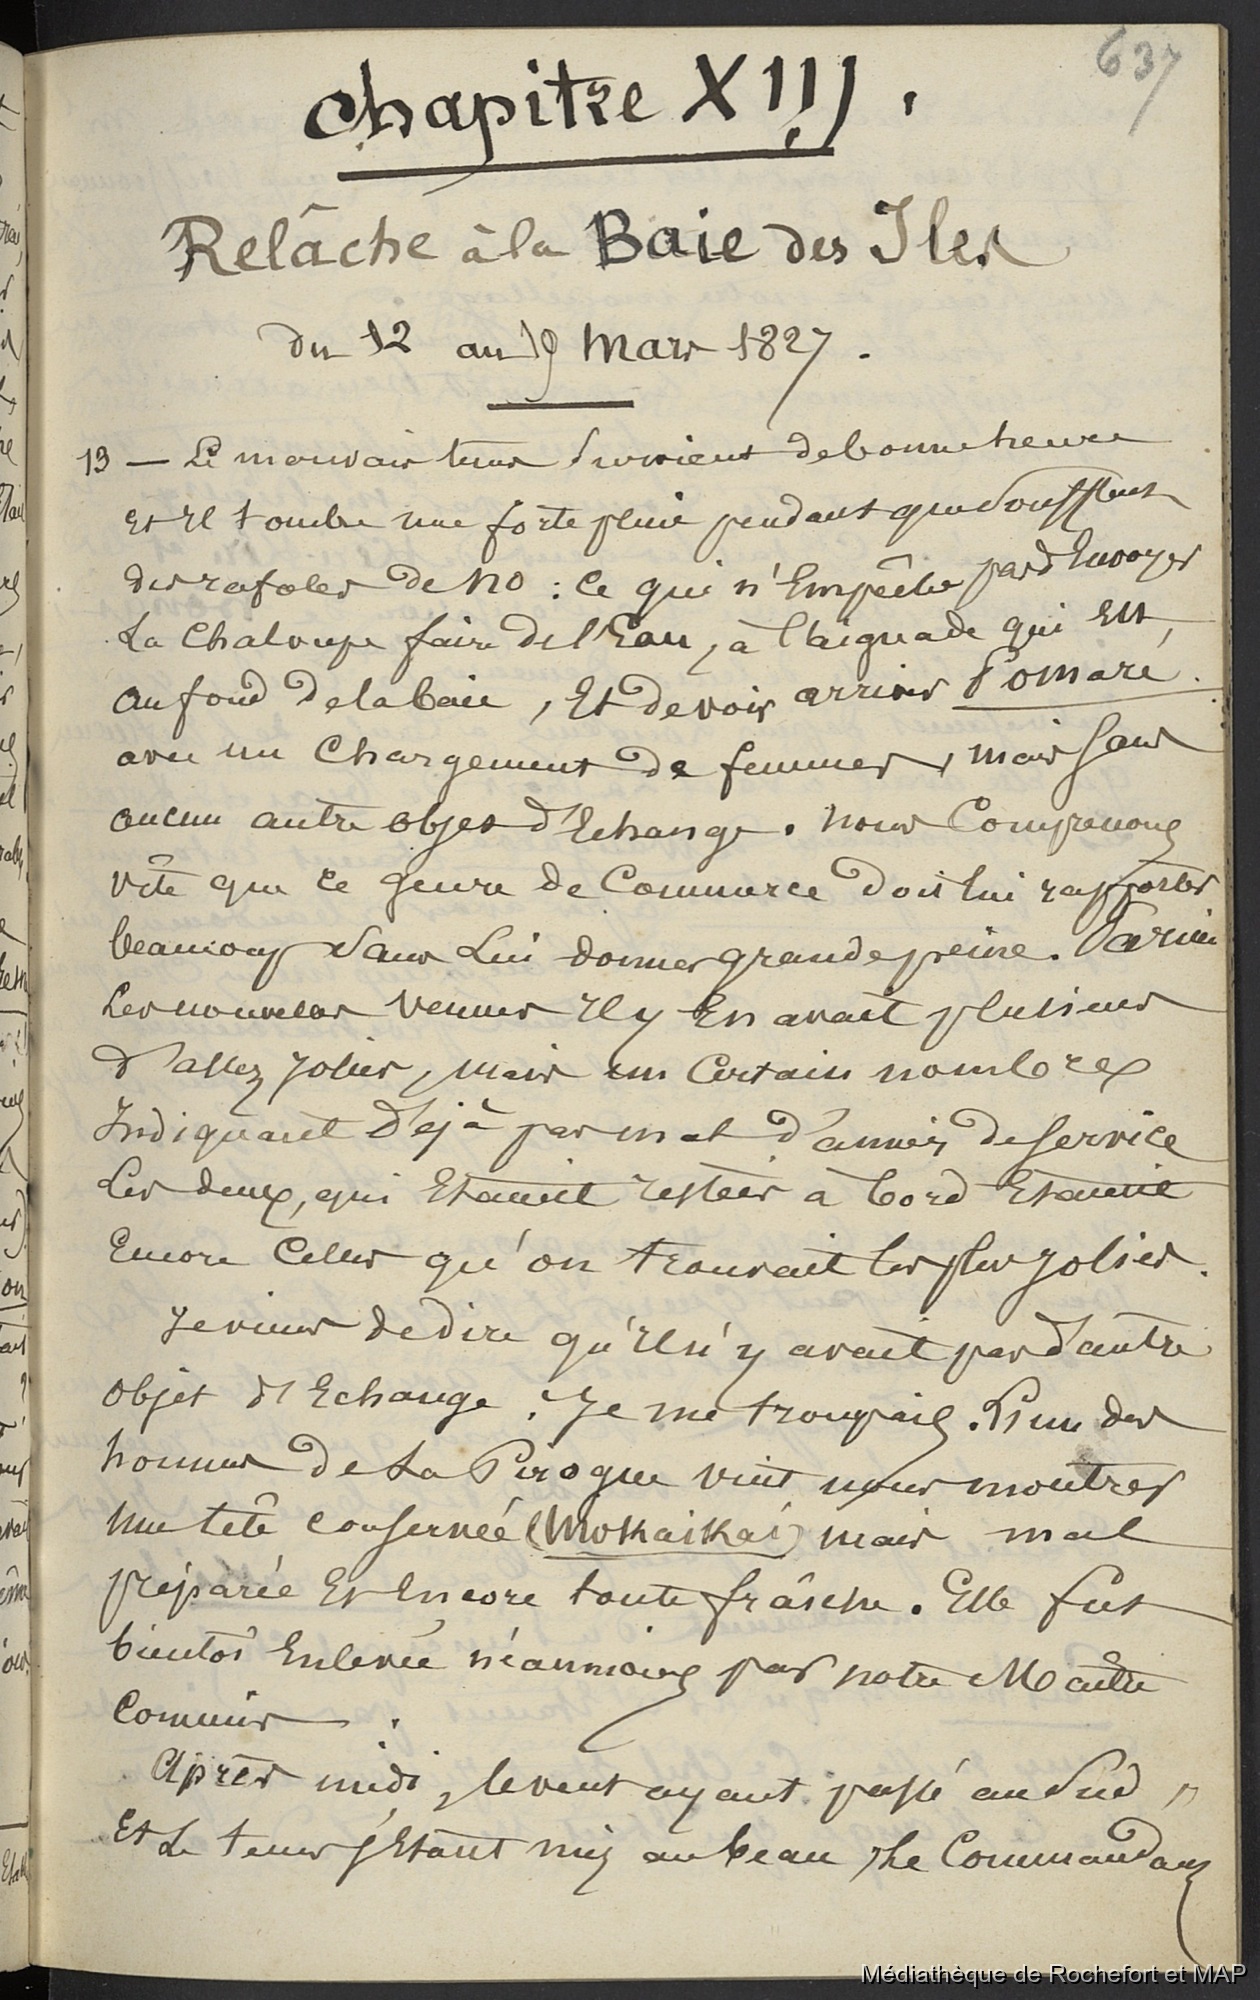 637
Chapitre XIII.
Relâche à la Baie des Iles
du 12 au 19 Mars 1827.
13 — Le mauvais tems survient de bonne heure
et il tombe une forte pluie pendant que soufflent
des rafales de NO : ce qui n'empêche pas d'Envoyer
La Chaloupe faire de l'Eau, à l'aiguade qui Est,
au fond de la baie, Et de voir arriver Pomaré.
avec un Chargement de femmes, mais sans
aucun autre objet d'Echange. Nous Comprenons
vite que ce genre de Commerce doit lui rapporter
beaucoup sans Lui donner grande peine. Parmi
Les nouvelles venues Il y En avait plusieurs
d'assez Jolies, mais un Certain nombre
Indiquant déjà pas mal d'années de service
Les deux, qui Etaient restées à bord Etaient
Encore Celles qu'on trouvait les plus Jolies.
Je viens de dire qu'Il n'y avait pas d'autre
objet d'Echange. Je me trompais. L'un des
hommes de La Pirogue vint nous montrer
une tête conservée (Mokaikai) mais mal
préparée Et Encore toute fraîche. Elle fut
bientôt Enlevée néanmoins par notre Maître
Commis.
Après midi, le vent ayant passé au Sud,
Et Le tems s'Etant mis au beau, Le Commandant
Médiathèque de Rochefort et MAP